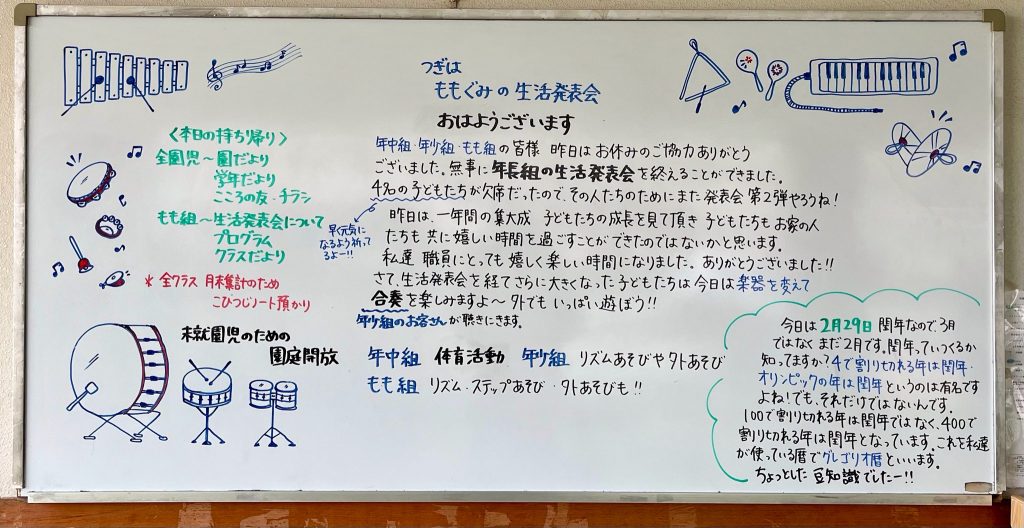 つぎは
ももぐみの生活発表会
おはようございます
〈本日の持ち帰り〉
全園児〜園だより
学年だより
こころの友・チラシ
もも組〜生活発表会について
プログラム
クラスだより
＊全クラス 月末集計のため
こひつじノート預かり
未就園児のための
園庭開放
年中組・年少組・もも組の皆様 昨日はお休みのご協力ありがとう
ございました。無事に年長組の生活発表会を終えることができました。
4名の子どもたちが欠席だったので、その人たちのためにまた発表会第2弾やろうね!
早く元気に
なるよう祈って
るよー!!
昨日は、一年間の集大成 子どもたちの成長を見て頂き 子どもたちも お家の人
たちも 共に嬉しい時間を過ごすことができたのではないかと思います。
私達 職員にとっても 嬉しく楽しい時間になりました。ありがとうございました!!
さて、生活発表会を経て さらに大きくなった子どもたちは 今日は楽器を変えて
合奏を楽しみますよ〜外でも いっぱい遊ぼう!!
年少組のお客さんが聴きにきます。
年中組 体育活動 年少組 リズムあそびや外あそび
もも組 リズム・ステップあそび・外あそびも!!
今日は2月29日 閏年なので、3月
ではなく まだ2月です。閏年っていつくるか
知ってますか?4で割り切れる年は閏年・
オリンピックの年は閏年というのは有名です
よね!でも、それだけではないんです。
100で割り切れる年は閏年ではなく、400で
割り切れる年は閏年となっています。これを私達
が使っている暦でグレゴリオ暦といいます。
ちょっとした豆知識でしたー!!